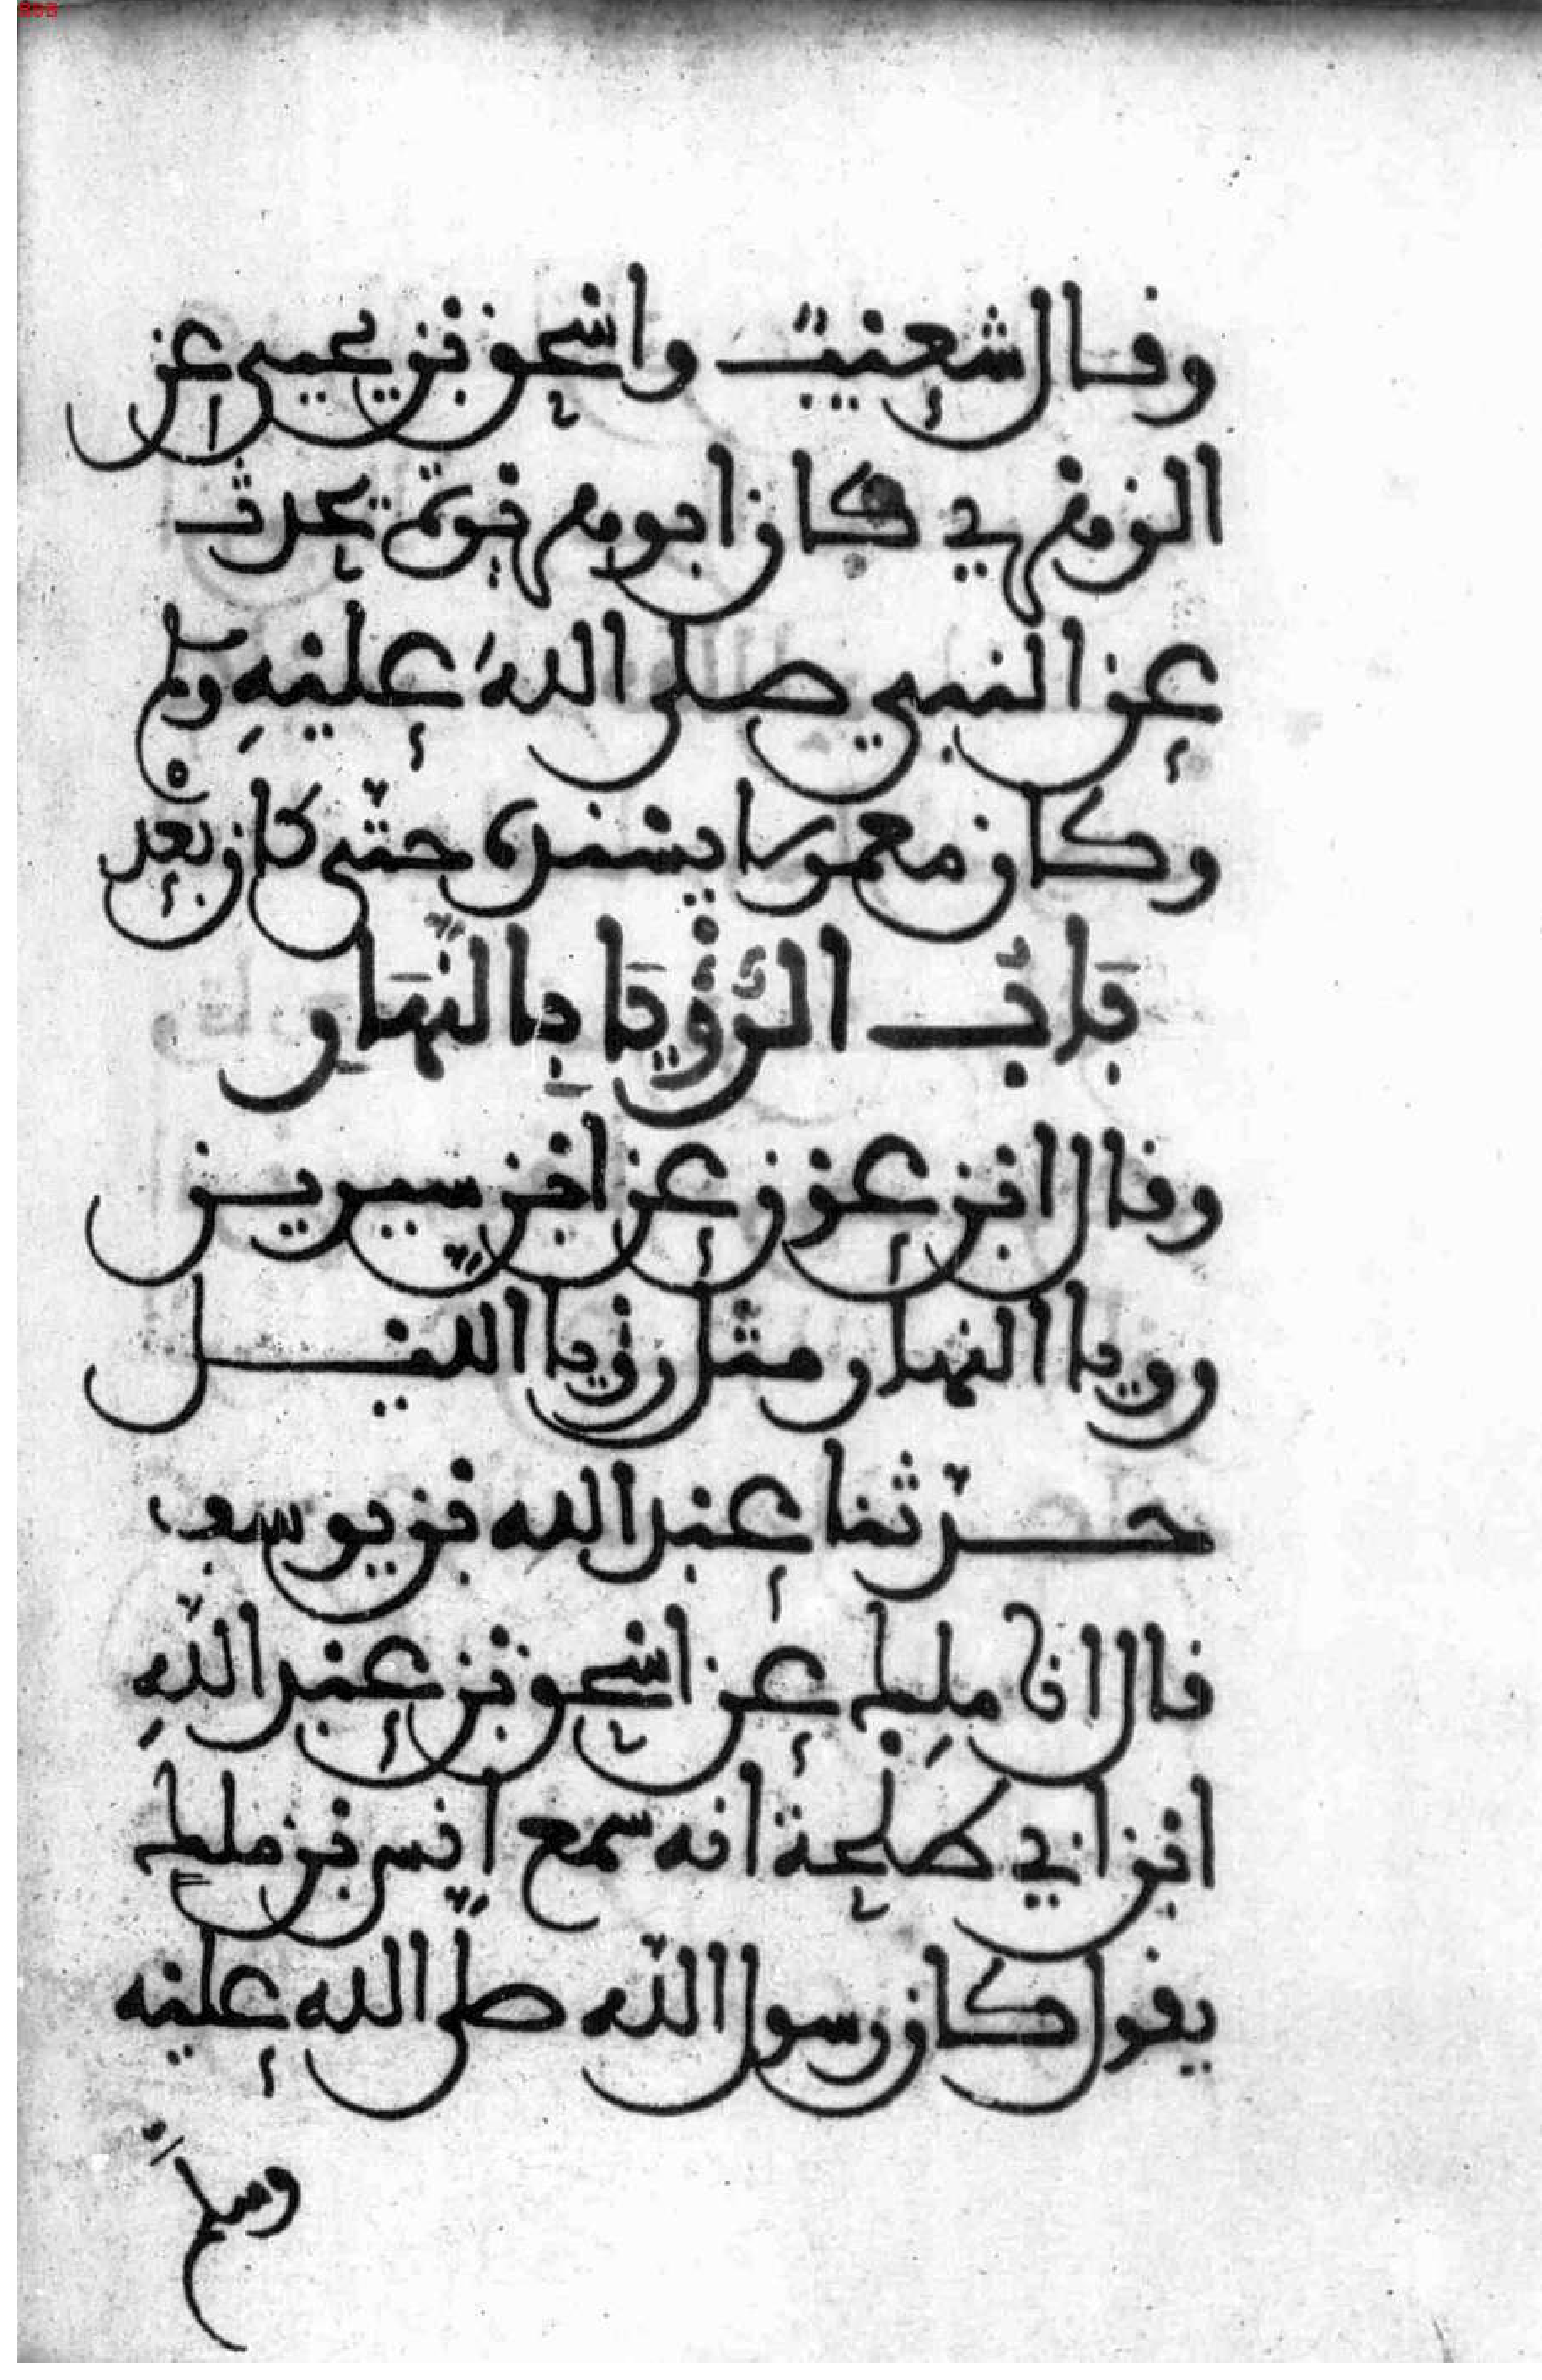 وقال شعيب واسحق بن يحيى عن
الزهري كان ابو هريرة يحدث
عن النبي صلى الله عليه وسلم
وكان معمر لا يسنده حتى كان بعد
بَابُ الرُّؤْيَا بِالنَّهَارِ
وقال ابن عون عن ابن سيرين
رويا النهار مثل رؤيا الليل
حدّثنا عبد الله بن يوسف
قال انا ملك عن اسحق بن عبد اللّهِ
ابن ابي طلحة انه سمع انس بن ملك
يقول كان رسول اللّه صلى الله عليه
وسلم